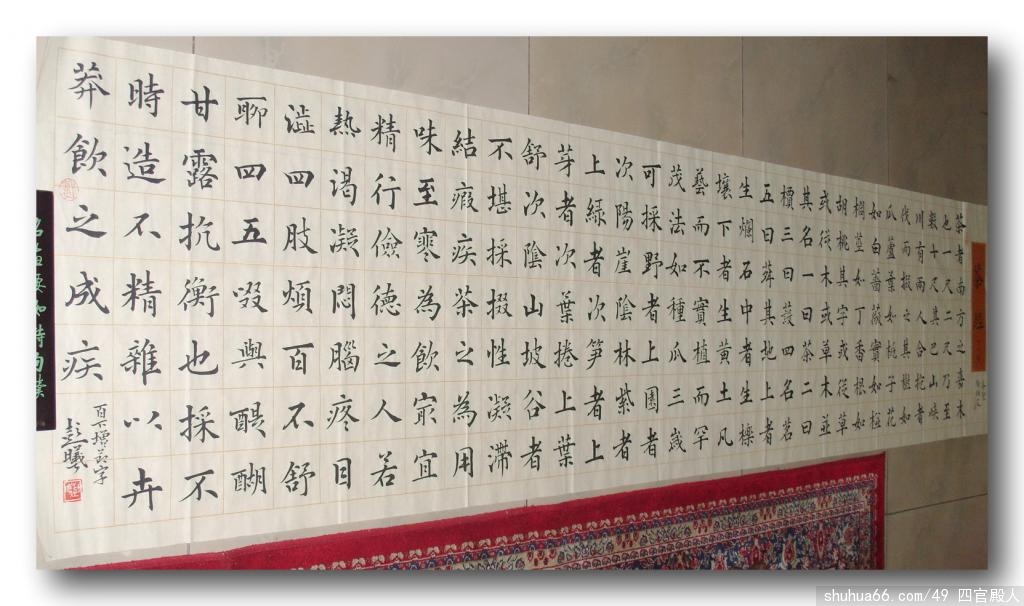 茶經
茶者南方之嘉木
也一尺二尺乃至
數十尺其巴山峽
川有兩人合抱者
伐而掇之其樹如
瓜蘆葉如梔子花
如白薔薇實如栟
櫚莖如丁香根如
胡桃其字或從草
或從木或草木並
其名一曰茶二曰
檟三曰蔎四名茗
五曰荈其地上者
生爛石中者生櫟
壤下者生黃土凡
藝而不實植而罕
茂法如種瓜三歲
可採野者上園者
次陽崖陰林紫者
上綠者次笋者上
芽者次葉捲上葉
舒次陰山坡谷者
不堪採掇性凝滯
結瘕疾茶之為用
味至寒為飲冣宜
精行儉德之人若
熱渴凝悶腦疼目
澁四肢煩百不舒
聊四五啜與醍醐
甘露抗衡也採不
時造不精雜以卉
莽飲之成疾
彭曦
shuhua66.com/49 四官殿人